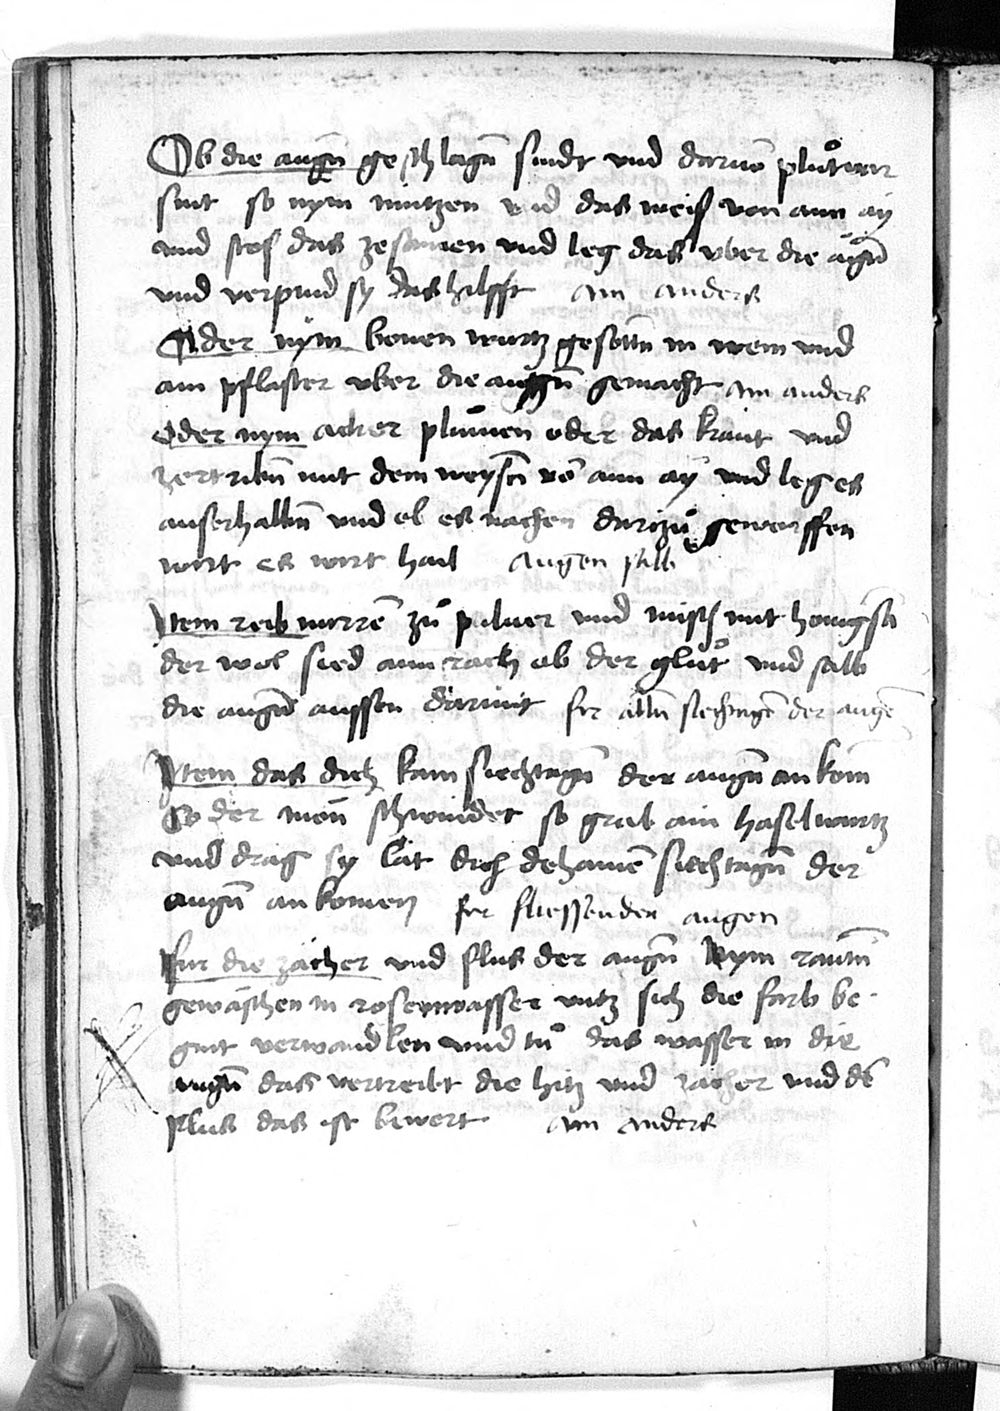 Ob die augñ geschlagñ sindt vnd daruō plůtvar
sint so nym mintzen vnd das weiß von aim ay
vnd stoß das zesamen vnd leg das vber die augñ
vnd verpind sy das hilfft Ain anders
Oder nym bonen wurtz gesottñ in wein vnd
ain pflaster vber die augñ gemacht Ain anders
oder nym acker plůmen oder das kraut vnd
zertribñ mit dem weyssñ vō aim ay vnd leg es
auserhalbñ vnd ob es nachen darzů geworffen
wirt es wirt hail Augen salb
Item reib mirrē zů puluer vnd misch mit honigsā
der wol sied ain rach ob der glůt vnd salb
die augñ aussen darmit fir allñ siechtagē der augē
Item das dich kain siechtagñ der augñ an kom
So der mon schwindet so grab ain haselwurtz
vnd drag sy lāt dich dehainē siechtagñ der
augñ an komen fir fliessenden augen
Fur die zächer vnd flus der augñ Nym rautñ
gewäschen in rosenwasser vntz sich die farb be-
gint verwandlen vnd tů das wasser in die
augñ das vertreibt die hitz vnd zächer vnd dē
flus das ist bewert Ain anders